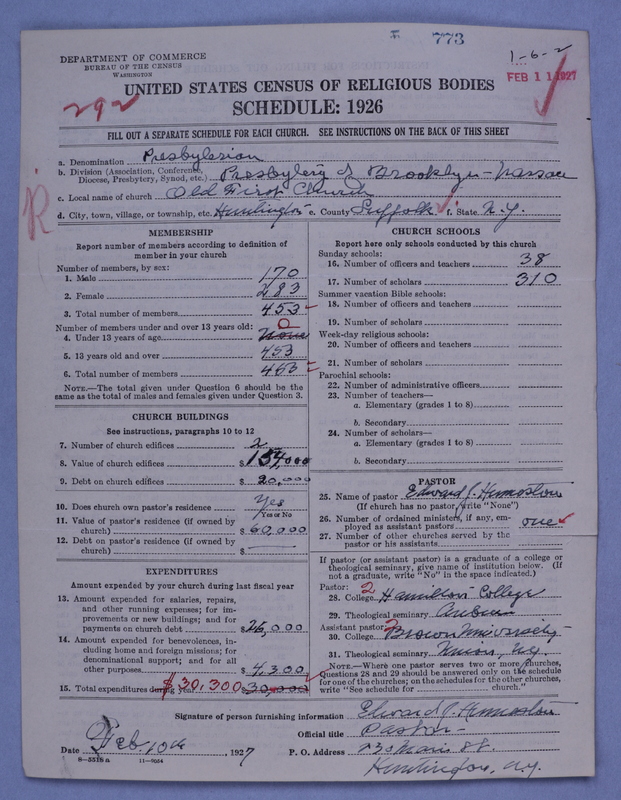 773
1-6-2
DEPARTMENT OF COMMERCE
BUREAU OF THE CENSUS
WASHINGTON
FEB 11 1927
UNITED STATES CENSUS OF RELIGIOUS BODIES
292
SCHEDULE: 1926
FILL OUT A SEPARATE SCHEDULE FOR EACH CHURCH. SEE INSTRUCTIONS ON THE BACK OF THIS SHEET
a. Denomination Presbyterian
b. Division (Association, Conference, Diocese, Presbytery, Synod, etc.) Presbytery of Brooklyn-Nassau
c. Local name of church Old First Church
d. City, town, village, or township, etc. Huntington e. County Suffolk f. State N.Y.
MEMBERSHIP
Report number of members according to definition of
member in your church
Number of members, by sex:
1. Male 170
2. Female 283
3. Total number of members 453
Number of members under and over 13 years old:
4. Under 13 years of age None 0
5. 13 years old and over 453
6. Total number of members 453
NOTE.—The total given under Question 6 should be
same as the total of males and females given under Question 3.
CHURCH BUILDINGS
See instructions, paragraphs 10 to 12
7. Number of church edifices 2
8. Value of church edifices $154,000
9. Debt on church edifices $20,000
10. Does church own pastor's residence? Yes
Yes or No
11. Value of pastor's residence (if owned by
church) $60,000
12. Debt on pastor's residence (if owned by
church) $
EXPENDITURES
Amount expended by your church during last fiscal year
13. Amount expended for salaries, repairs,
and other running expenses; for im-
provements or new buildings; and for
payments on church debt $26,000
14. Amount expended for benevolences, in-
cluding home and foreign missions; for
denominational support; and for all
other purposes $4,300
15. Total expenditures during year $30,300 30,000
CHURCH SCHOOLS
Report here only schools conducted by this church
Sunday schools:
16. Number of officers and teachers 38
17. Number of scholars 310
Summer vacation Bible schools:
18. Number of officers and teachers
19. Number of scholars
Week-day religious schools:
20. Number of officers and teachers
21. Number of scholars
Parochial schools:
22. Number of administrative officers
23. Number of teachers—
a. Elementary (grades 1 to 8)
b. Secondary
24. Number of scholars—
a. Elementary (grades 1 to 8)
b. Secondary
PASTOR
25. Name of pastor Edward J.
(If church has no pastor, write "None")
26. Number of ordained ministers, if any, em-
ployed as assistant pastors one
27. Number of other churches served by the
pastor or his assistants
If pastor (or assistant pastor) is a graduate of a college or
theological seminary, give name of institution below. (If
not a graduate, write "No" in the space indicated.)
Pastor: 2
28. College Hamilton College
29. Theological seminary Auburn
Assistant pastor:
30. College Brown University
31. Theological seminary Union, N.Y.
NOTE.—Where one pastor serves two or more churches,
Questions 28 and 29 should be answered only on the schedule
for one of the churches; on the schedules for the other churches,
write "See schedule for church."
Signature of person furnishing information Edward J.
Official title Pastor
Date Feb. 10th 1927 P. O. Address 230 Main St.
8-5518a 11-9054
Huntington, N.Y.